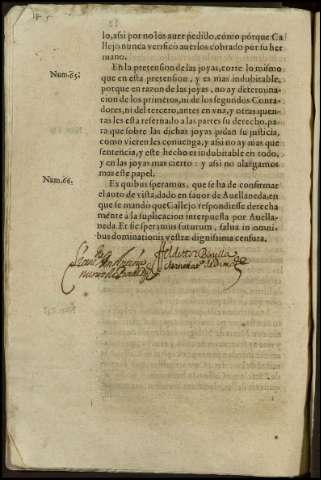 lo, assi por no los auer pedido, como porque Ca
llejo nunca verificò auerlos cobrado por su her
mano.
Num. 65.
En la pretension de las joyas, corre lo mismo
que en esta pretension, y es mas indubitable,
porque en razon de las joyas, no ay determina
cion de los primeros, ni de los segundos Conta-
dores, ni del tercero, antes en vna, y otras quen-
tas les està reseruado à las partes su derecho, pa
ra que sobre las dichas joyas pidan su justicia,
como vieren les conuenga, y assi no ay mas que
sentencia, y este hecho es indubitable en todo,
y en las joyas mas cierto: y assi no alargamos
mas este papel.
Num. 66.
Ex quibus speramus, que se ha de confirmar
el auto de vista, dado en fauor de Auellaneda, en
que se mandò que Callejo respondiesse derecha
mente à la suplicacion interpuesta por Auella-
neda. Et sic speramus futurum, salua in omni
bus dominationis vestræ dignissima censura.
El doctor Bonilla